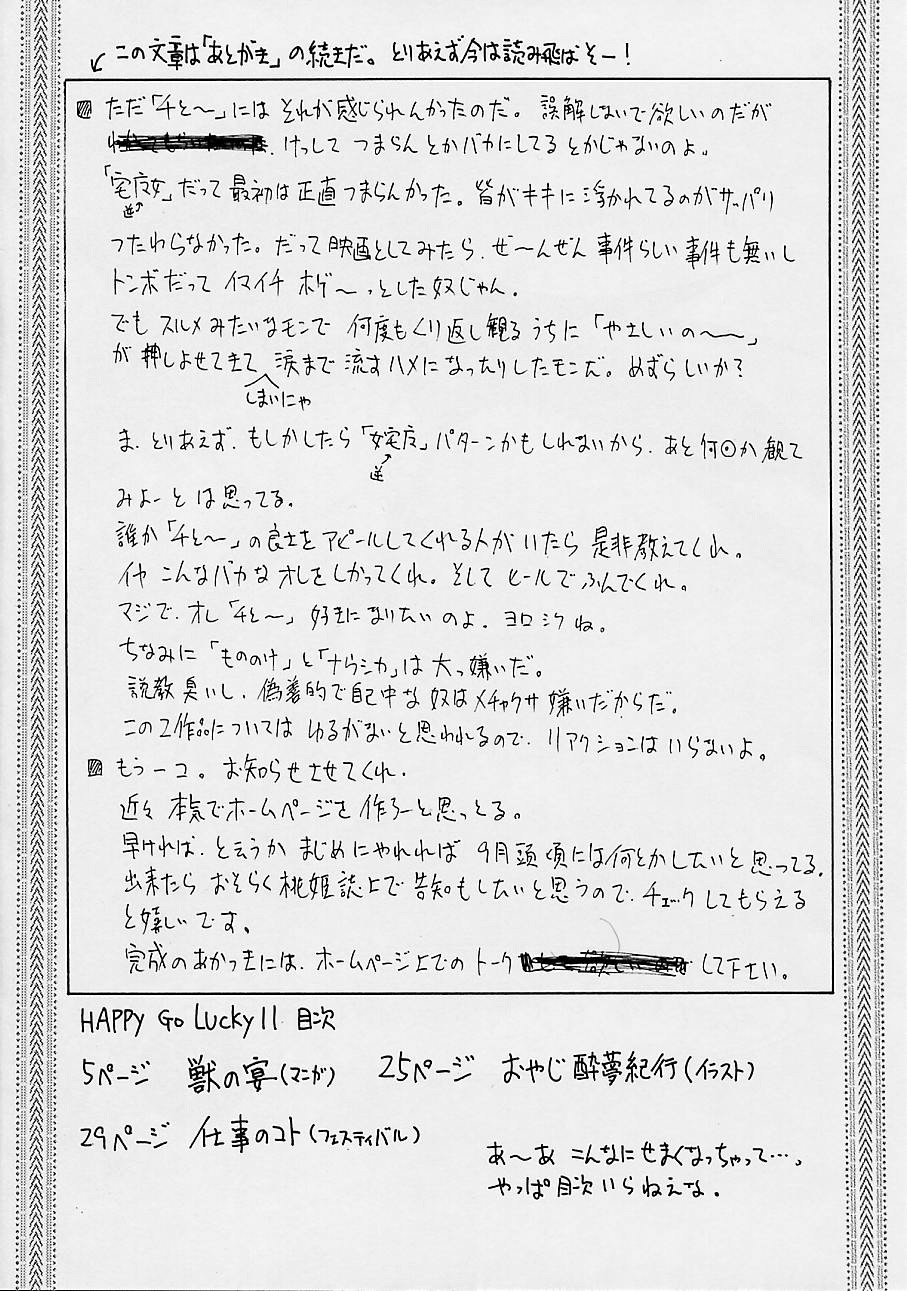 この文章は「あとがき」の続きだ。とりあえず今は読み飛ばそー！
ただ「千と〜」には それが感じられんかったのだ。誤解しないで欲しいのだが
けっして つまらんとかバカにしてるとかじゃないのよ。
「宅広女」だって最初は正直つまらんかった。皆がキキに浮かれてるのがサッパリ
逆
つたわらなかった。だって映画としてみたら、ぜ〜んぜん 事件らしい事件も無いし
トンボだって イマイチ ボゲ〜っとした奴じゃん。
でも スルメみたいなモンで 何度もくり返し観るうちに「やさしいの〜〜」
が押しよせてきて しまいにゃ 涙まで流すハメになったりしたモンだ。めずらしいか？
ま、とりあえず、もしかしたら「女宅広」パターンかもしれないから、あと何回か観て
逆
みよーとは思ってる。
誰か「千と〜」の良さをアピールしてくれる人がいたら 是非教えてくれ。
イヤ こんなバカな オレをしかってくれ。そして ヒールでふんでくれ。
マジで、オレ「千と〜」好きになりたいのよ。ヨロシクね。
ちなみに「もののけ」と「ナウシカ」は 大っ嫌いだ。
説教臭いし、偽善的で自己中な奴はメチャクサ嫌いだからだ。
この2作品については ゆるがないと思われるので、リアクションはいらないよ。
もう一コ。お知らせさせてくれ。
近々 本気でホームページを作ろーと思っとる。
早ければ、と云うか まじめにやれれば 9月頭頃には何とかしたいと思ってる。
出来たら おそらく桃姫誌上で告知もしたいと思うので、チェックしてもらえる
と嬉しいです。
完成のあかつきには、ホームページ上でのトーク して下さい。
HAPPY Go Lucky11 目次
5ページ 獣の宴(マンガ) 25ページ おやじ酔夢紀行(イラスト)
29ページ 仕事のコト(フェスティバル)
あ〜あ こんなにせまくなっちゃって…。
やっぱ目次いらねえな。